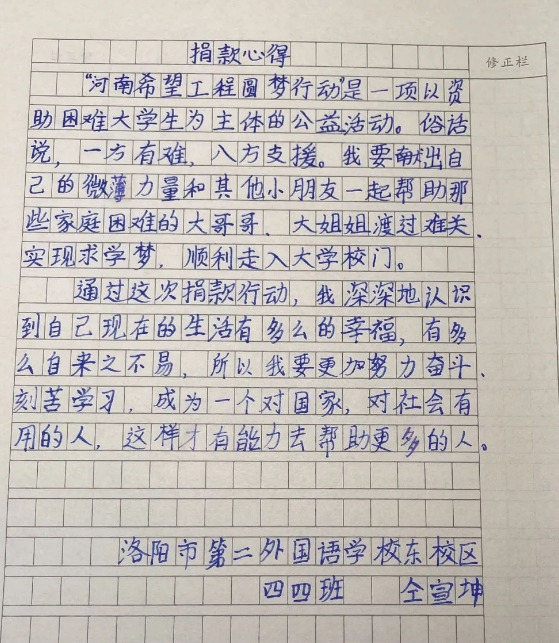 捐款心得
修正栏
"河南希望工程圆梦行动"是一项以资
助困难大学生为主体的公益活动。俗话
说，一方有难，八方支援。我要献出自
己的微薄力量和其他小朋友一起帮助那
些家庭困难的大哥哥、大姐姐渡过难关、
实现求学梦，顺利走入大学校门。
通过这次捐款行动，我深深地认识
到自己现在的生活有多么的幸福，有多
么自来之不易，所以我要更加努力奋斗、
刻苦学习，成为一个对国家，对社会有
用的人，这样才有能力去帮助更多的人。
洛阳市第二外国语学校东校区
四四班 仝宣坤